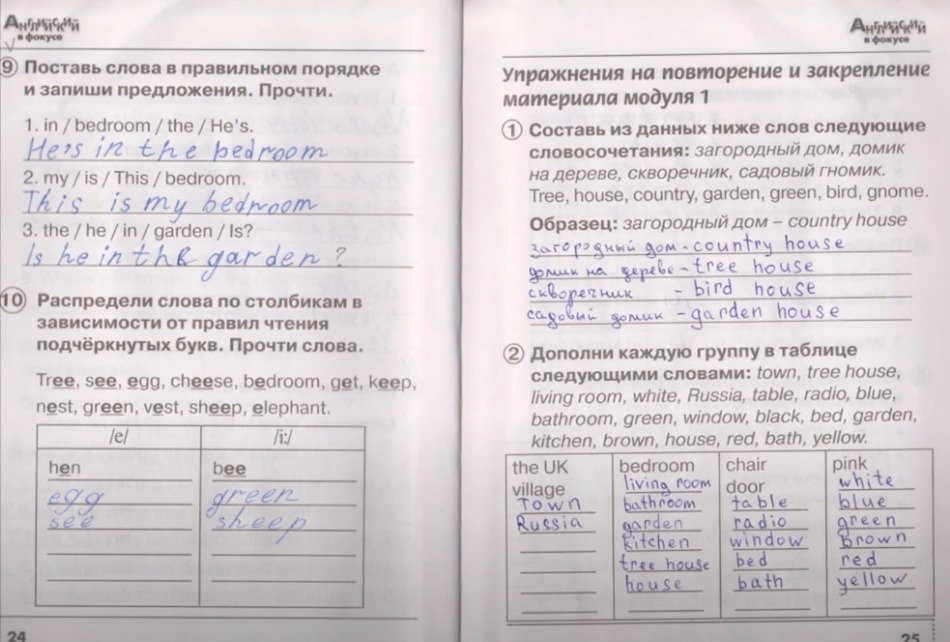 Английский
в фокусе
9 Поставь слова в правильном порядке
и запиши предложения. Прочти.
1. in / bedroom / the / He's.
He's in the bedroom
2. my / is / This / bedroom.
This is my bedroom
3. the / he / in / garden / Is?
Is he in the garden ?
10 Распредели слова по столбикам в
зависимости от правил чтения
подчёркнутых букв. Прочти слова.
Tree, see, egg, cheese, bedroom, get, keep,
nest, green, vest, sheep, elephant.
/e/ /i:/
hen bee
egg green
see sheep
24
Английский
в фокусе
Упражнения на повторение и закрепление
материала модуля 1
1 Составь из данных ниже слов следующие
словосочетания: загородный дом, домик
на дереве, скворечник, садовый гномик.
Tree, house, country, garden, green, bird, gnome.
Образец: загородный дом – country house
загородный дом - country house
домик на дереве - tree house
скворечник - bird house
садовый домик - garden house
2 Дополни каждую группу в таблице
следующими словами: town, tree house,
living room, white, Russia, table, radio, blue,
bathroom, green, window, black, bed, garden,
kitchen, brown, house, red, bath, yellow.
the UK bedroom chair pink
village living room door white
Town bathroom table blue
Russia garden radio green
kitchen window brown
tree house bed red
house bath yellow
25